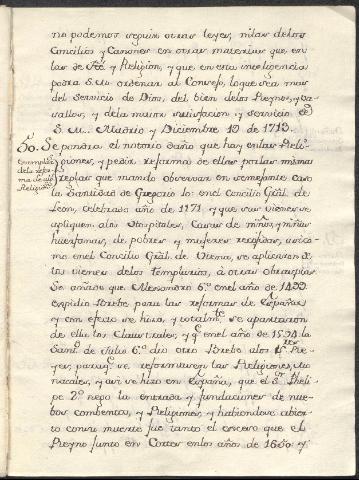 no podemos seguir otras leyes, ni las delos
Concilios y Canones en otras materias que en
las de Feé y Religion, y que en esta inteligencia
podra S.M. ordenar al Consejo, loque sea mas
del servicio de Dios, del bien delos Reynos, y va-
sallos, y dela maior satisfacion y servicio de
S. M. Madrid y Diciembre 19 de 1713.
50. Se pondra el notorio daño que hay en las Reli-
giones, y pedir reforma de ellas por las mismas
reglas que mando observar en semejante caso
la Santidad de Gregorio 10. en el Concilio Grãl. de
Leon, celebrado año de 1271 y que sus vienes se
apliquen alos Hospitales, Casas de niños y niñas
huerfanas, de pobres y mugeres recojidas, asi co-
mo en el Concilio Grãl. de Viena, se aplicaron de
los vienes delos Templarios, à otras obras pias
Se añade que Alessandro 6.º en el año de 1499
expidio Brebe para las reformas de España
y con efecto se hizo, y totalm.te se apartaron
de ella los Claustrales, y q.e en el año de 1534 la
Sant.d de Julio 6.º dio otro Brebe alos S.res Re-
yes, para q.e se reformasen las Religiones, Mo-
nacales, y asi se hizo en España, que el S.r Pheli-
pe 2.º nego la entrada y fundaciones de nue-
bos combentos, y Religiones, y habiendose abier-
to con su muerte fue tanto el exceso que el
Reyno junto en Cortes en los años de 1650 y
exemplos
dela refor-
ma de las
Religiones